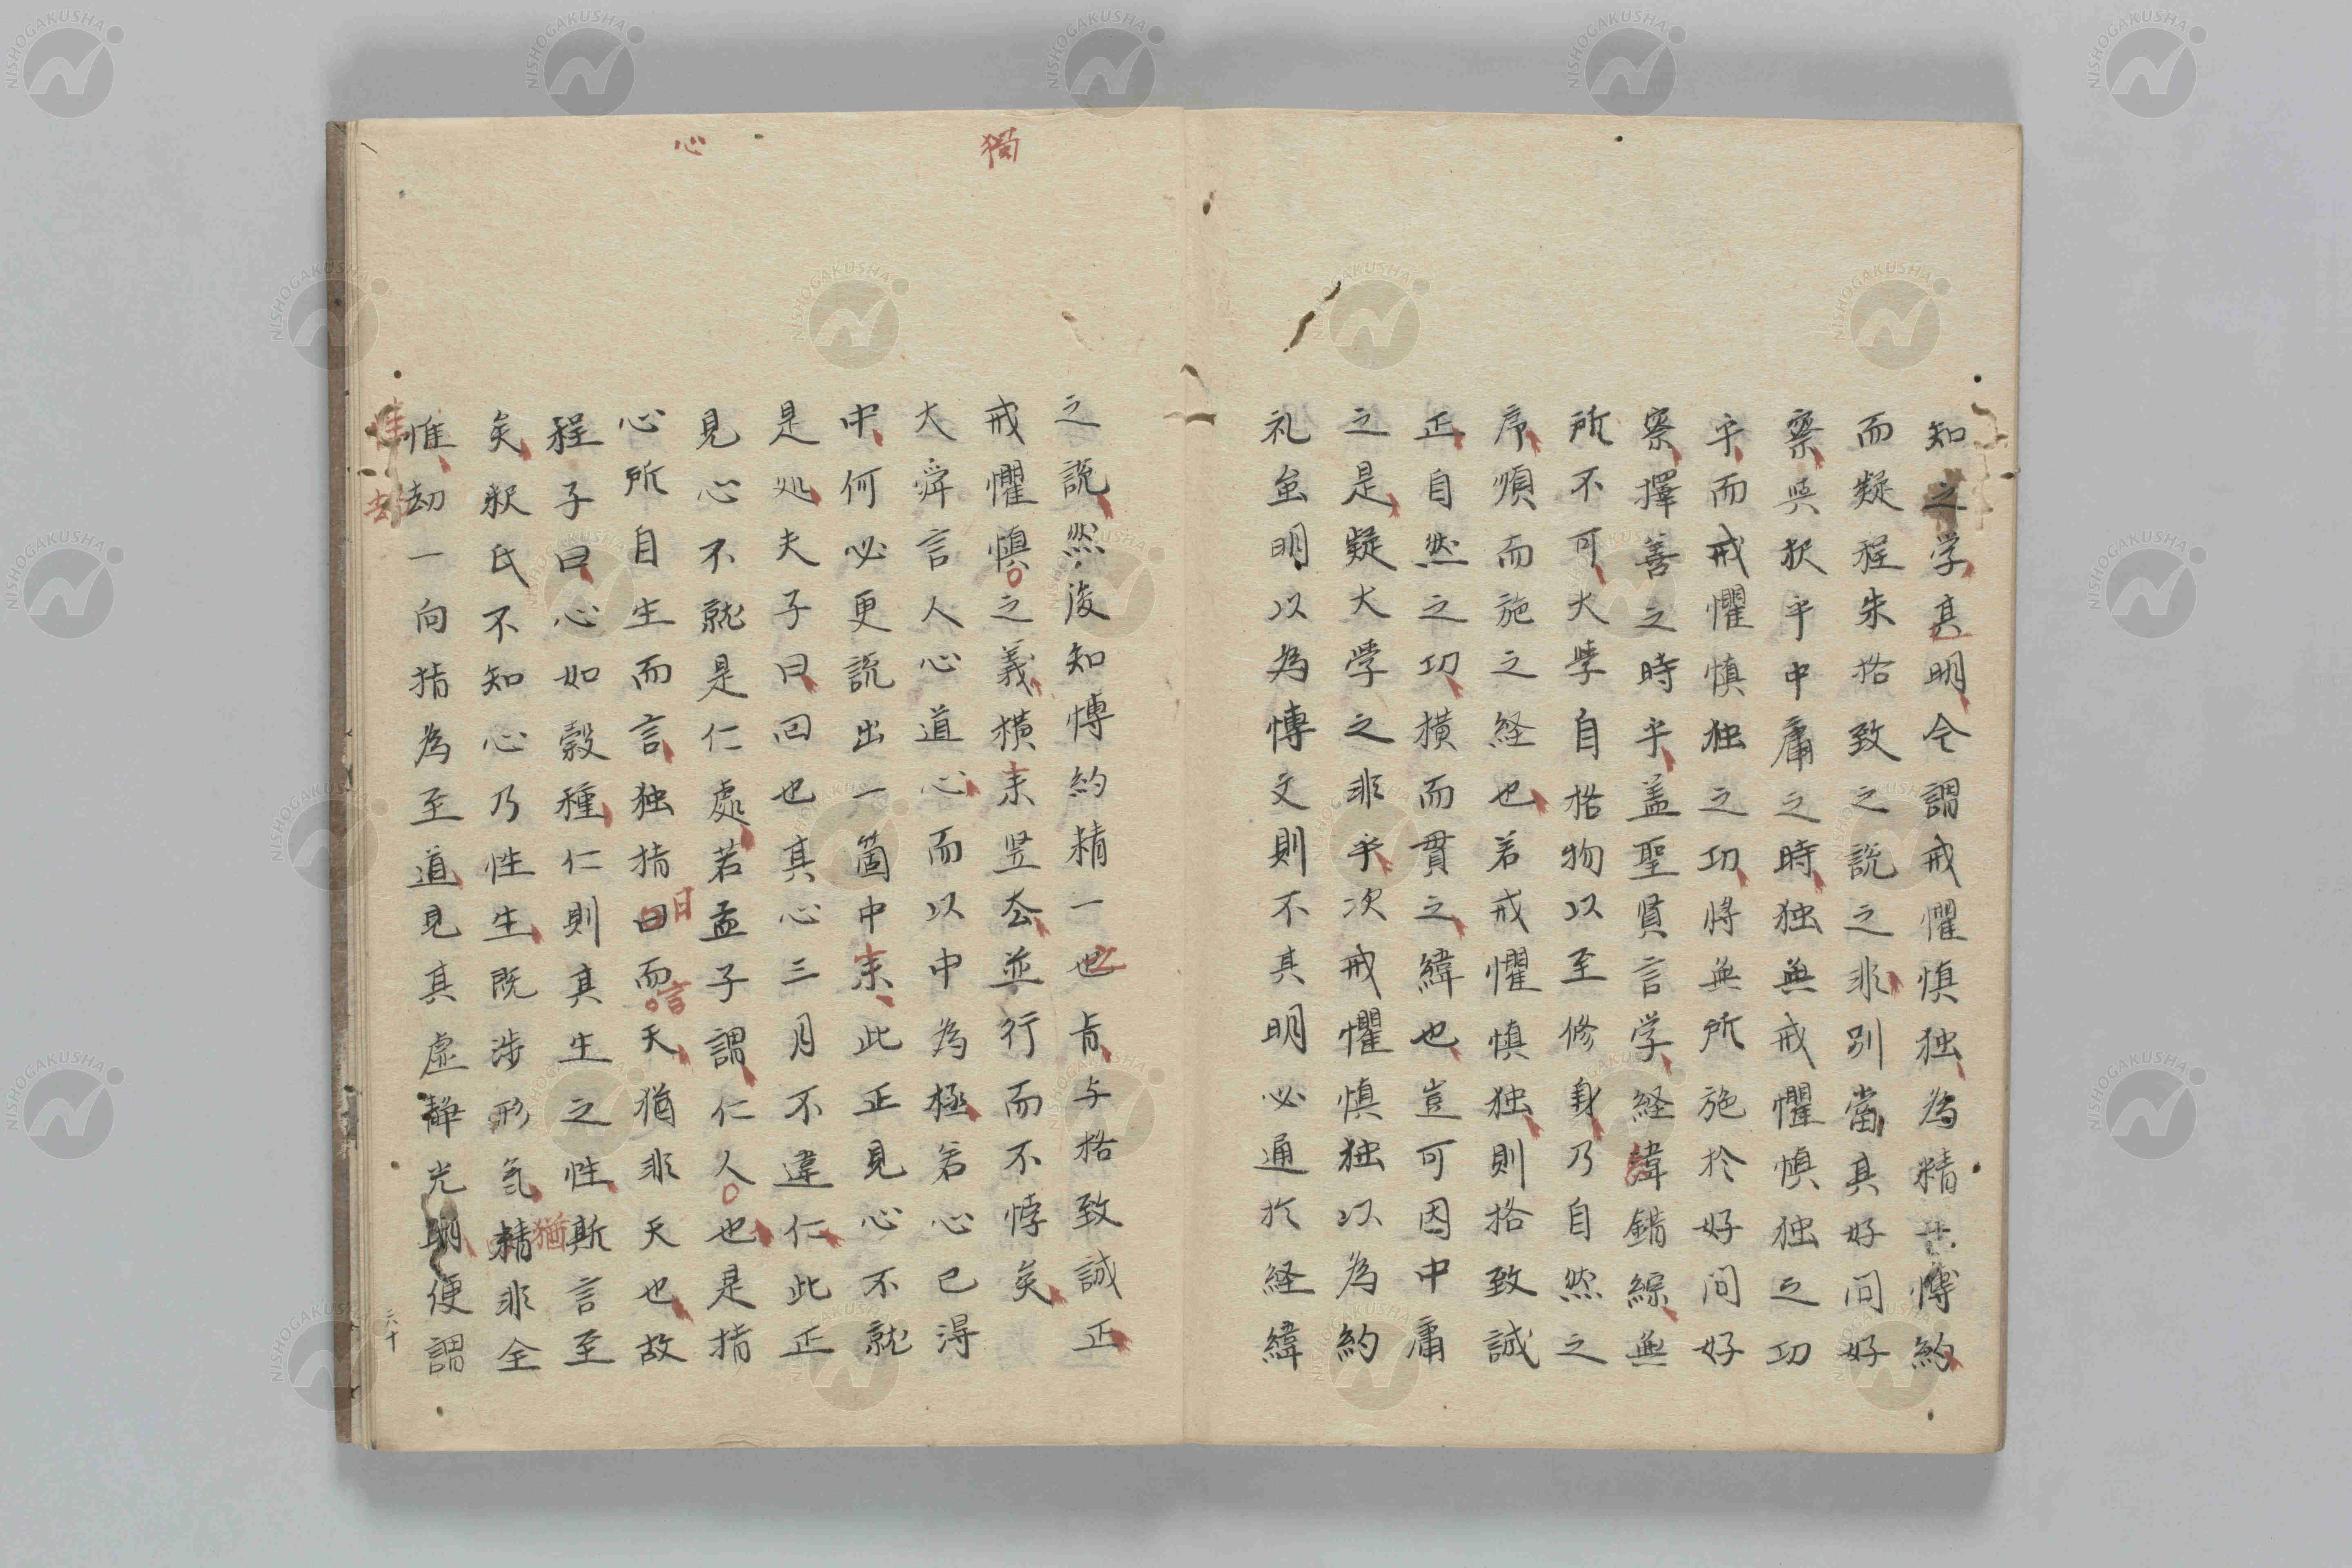 知之学真明令謂戒懼慎独為精其愽約
而疑程朱格致之説之非別當其好問好
察與釈乎中庸之時独無戒懼慎独之功
乎而戒懼慎独之功将無所施於好問好
察擇善之時乎盖聖賢言学経緯錯綜無
所不可大学自格物以至修身乃自然之
序順而施之経也若戒懼慎独則格致誠
正自然之功横而貫之緯也豈可因中庸
之是疑大学之非乎次戒懼慎独以為約
礼兪明以為愽文則不其明必通於経緯
獨
心
之説然後知愽約精一也之旨与格致誠正
戒懼慎之義横来竖去並行而不悖矣
大舜言人心道心而以中為極若心已得
中何必更説出一箇中来此正見心不就
是処夫子曰回也其心三月不違仁此正
見心不就是仁處若孟子謂仁人也是指
心所自生而言独指曰日而言天猶非天也故
程子曰心如穀種仁則其生之性斯言至
矣釈氏不知心乃性生既渉形氣精猶非全
惟劫一向指為至道見其虚静光明便謂
惟
去
六十
NISHOGAKUSHA